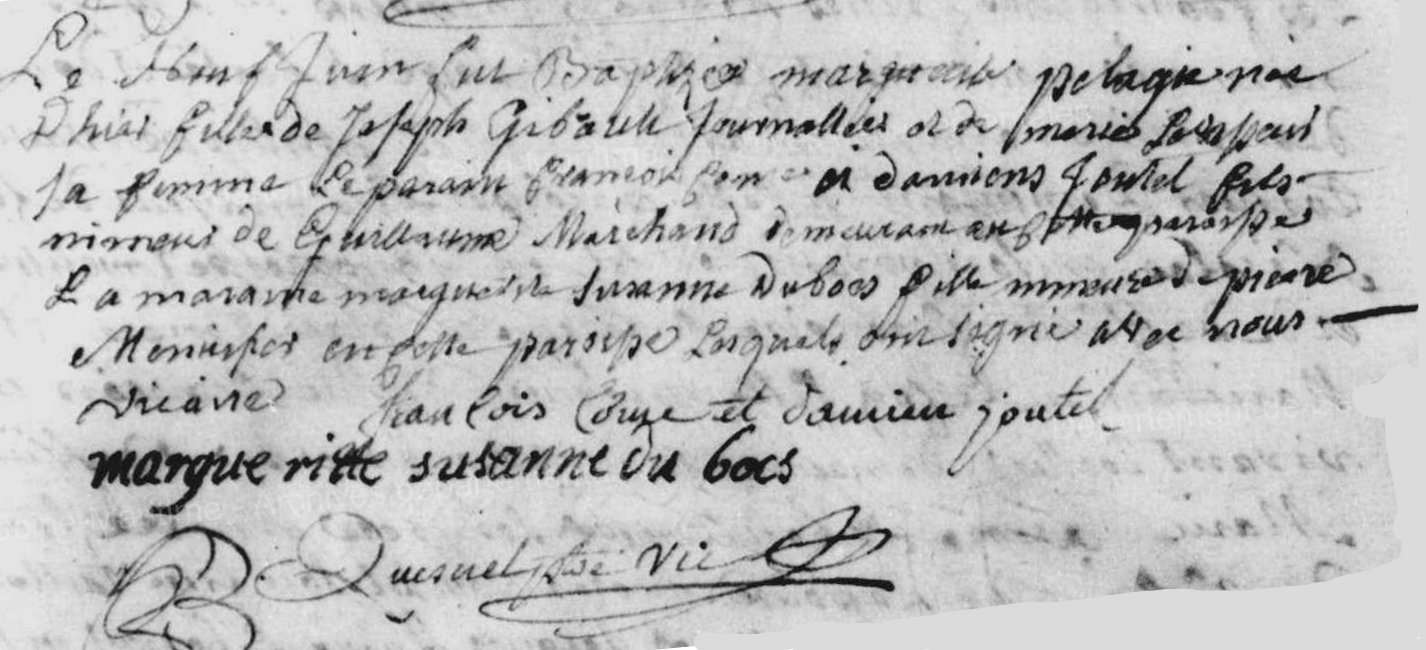 Le Neuf Juin fut Baptizée marguerite pelagie née
D'hier fille de Joseph Gibault Journallier et de marie
sa femme Le parain françois Come et damiens Joutel fils
mineur de Guillaume Marchand demeurant en paroisse
La maraine marguerite susanne Duboos fille mineure de pierre
Menuisier en cette paroisse Lesquels ont signé avec nous
vicaire francois Come et damien joutel
margue ritte susanne du bocs
Quesnel ptre Vic